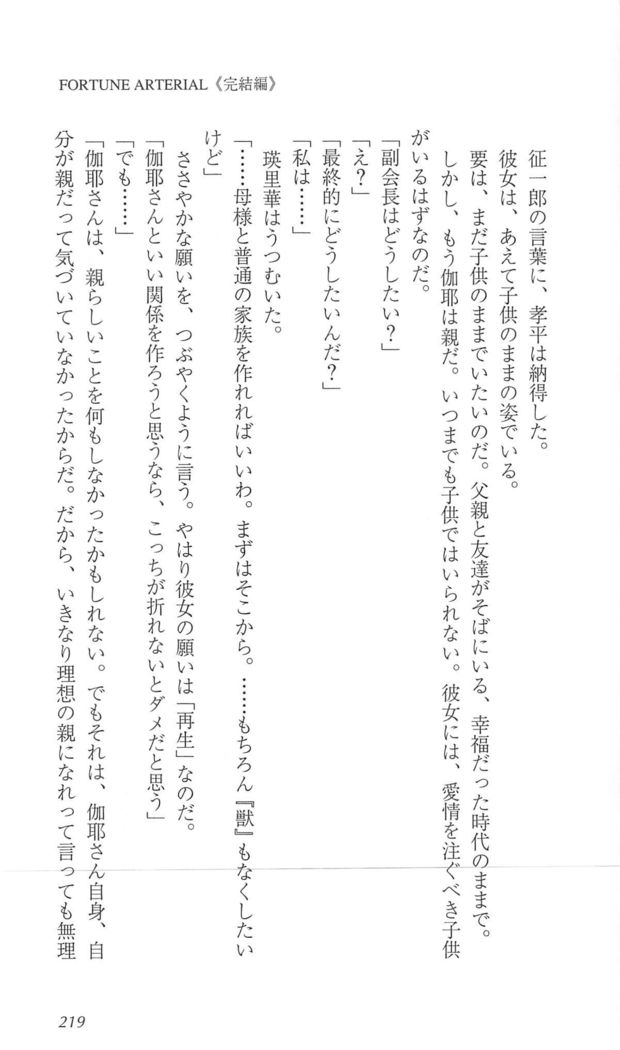 FORTUNE ARTERIAL《完結編》
征一郎の言葉に、孝平は納得した。
彼女は、あえて子供のままの姿でいる。
要は、まだ子供のままでいたいのだ。父親と友達がそばにいる、幸福だった時代のままで。
しかし、もう伽耶は親だ。いつまでも子供ではいられない。彼女には、愛情を注ぐべき子供
がいるはずなのだ。
「副会長はどうしたい？」
「え？」
「最終的にどうしたいんだ？」
「私は……」
瑛里華はうつむいた。
「……母様と普通の家族を作れればいいわ。まずはそこから。……もちろん『獣』もなくしたい
けど」
ささやかな願いを、つぶやくように言う。やはり彼女の願いは「再生」なのだ。
「伽耶さんといい関係を作ろうと思うなら、こっちが折れないとダメだと思う」
「でも……」
「伽耶さんは、親らしいことを何もしなかったかもしれない。でもそれは、伽耶さん自身、自
分が親だって気づいていなかったからだ。だから、いきなり理想の親になれって言っても無理
219